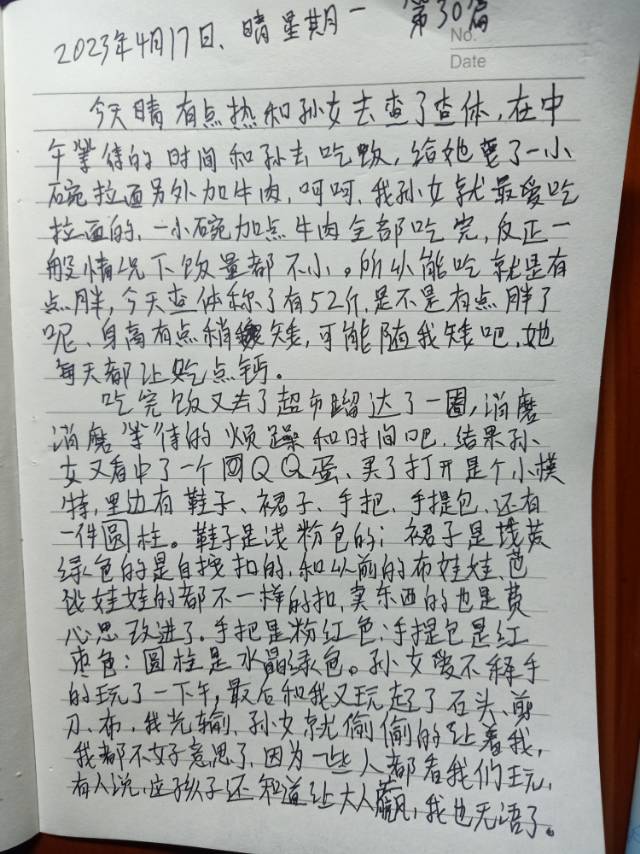 2023年4月17日、晴 星期一 第30篇
No.
Date
今天晴有点热和孙女去查了查体,在中
午等待的时间和孙去吃饭,给她要了一小
碗拉面另外加牛肉,呵呵,我孙女就最爱吃
拉面的,一小碗加点牛肉全部吃完,反正一
般情况下饭量都不小。所以能吃就是有
点胖,今天查体称了有52斤,是不是有点胖了
呢、身高有点稍矮,可能随我矮吧,她
每天都让吃点钙。
吃完饭又去了超市蹓达了一圈,消磨
消磨等待的烦躁和时间吧,结果孙
女又看中了一个QQ蛋、买了打开是个小模
特,里边有鞋子、裙子、手把、手提包、还有
一件圆柱。鞋子是浅粉色的;裙子是浅黄
绿色的是自按扣的,和以前的布娃娃、芭
比娃娃的都不一样的扣,卖东西的也是费
心思改进了。手把是粉红色;手提包是红
枣色;圆柱是水晶绿色。孙女爱不释手
的玩了一下午,最后和我又玩起了石头、剪
刀、布,我光输、孙女就偷偷的让着我,
我都不好意思了,因为一些人都看我们玩,
有人说,这孩子还知道让大人赢,我也无语了。